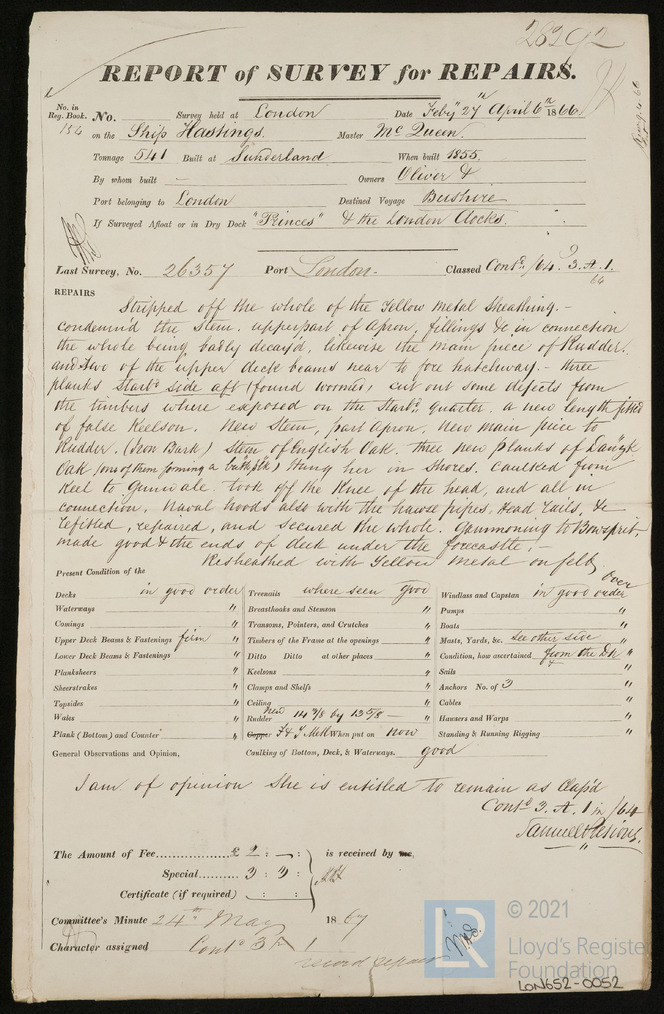 26292
REPORT of SURVEY for REPAIRS.
No. in Reg. Book. No. Survey held at London Date Feby 27th April 6th 1866
184 on the Ship Hastings. Master McQueen.
Tonnage 541 Built at Sunderland When built 1855.
By whom built — Owners Oliver &
Port belonging to London Destined Voyage Bushire
If Surveyed Afloat or in Dry Dock "Princes" & the London Docks.
Last Survey, No. 26357 Port London. Classed Contd. /64. 3. A. 1.
64
REPAIRS
Stripped off the whole of the Yellow Metal Sheathing.—
condemn'd the Stem. upperpart of Apron, fillings &c in connection
the whole being badly decay'd, likewise the main piece of Rudder.
and two of the upper deck beams near to fore hatchway.— three
planks Starbd side aft (found wormed) cut out some defects from
the timbers where exposed on the Starbd quarter. a new length fitted
of false Keelson. New Stem, part Apron. New main piece to
Rudder. (Iron Bark) Stem of English Oak. three new planks of Danzk
Oak (one of them forming a butt Stk) Hung her in Shores. Caulked from
Keel to Gunwale. took off the Knee of the head, and all in
connection. Naval hoods also with the hawse pipes, Head rails, &c
refitted, repaired, and secured the whole. Gammoning to Bowsprit,
made good & the ends of deck under the forecastle,—
Resheathed with Yellow Metal on felt, over
Present Condition of the
Decks in good order Treenails where seen good Windlass and Capstan in good order
Waterways " Breasthooks and Stemson " Pumps "
Comings " Transoms, Pointers, and Crutches " Boats "
Upper Deck Beams & Fastenings firm " Timbers of the Frame at the openings " Masts, Yards, &c. See other side
Lower Deck Beams & Fastenings " Ditto Ditto at other places " Condition, how ascertained from the Dk "
Planksheers " Keelsons " Sails "
Sheerstrakes " Clamps and Shelfs " Anchors No. of 3 "
Topsides " Ceiling " Cables "
Wales " Rudder New 14 7/8 by 13 5/8 — Hawsers and Warps "
Plank (Bottom) and Counter " Copper F & Y Metl When put on now Standing & Running Rigging "
General Observations and Opinion, Caulking of Bottom, Deck, & Waterways. good
I am of opinion She is entitled to remain as Class'd
Contd 3. A. 1 in /64
The Amount of Fee £ 2 : — : is received by me,
Special 3 : 3 :
Certificate (if required) : :
Committee's Minute 24th May 1867
Character assigned Contd 3 A 1
record repairs
© 2021
LR
Lloyd's Register
Foundation
LON652-0052